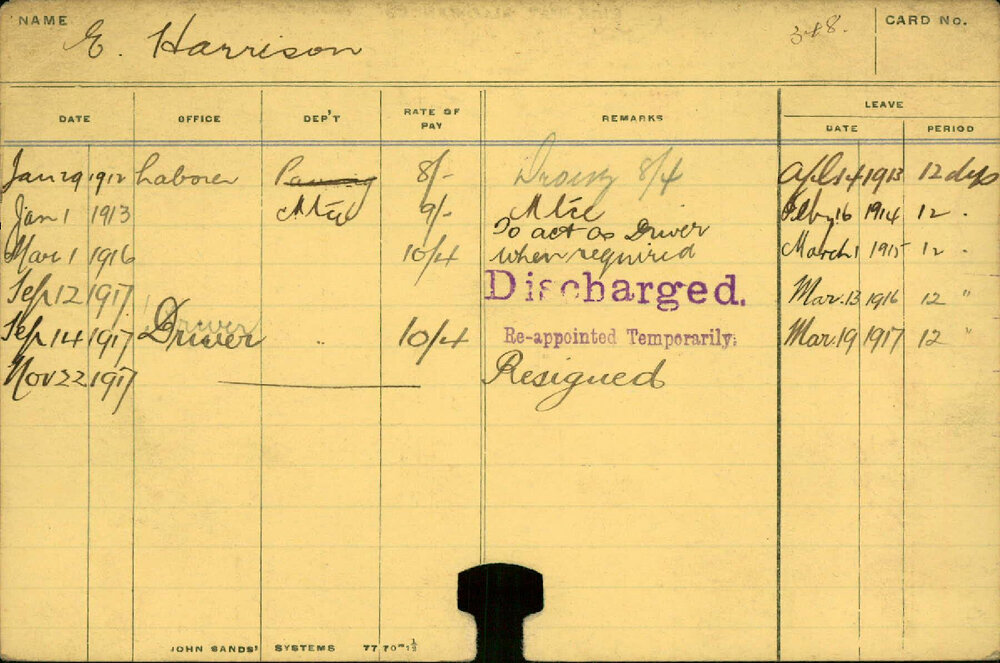 NAME E. Harrison 348. CARD No.
DATE OFFICE DEP'T RATE OF PAY REMARKS LEAVE
DATE PERIOD
Jan 29 1912 Laborer Paving 8/- 8/4 Apl 14 1913 12 days
Jan 1 1913 Mtce 9/- Mtce Feby 16 1914 12 "
To act as Driver
Mar 1 1916 10/4 when required March 1 1915 12 "
Sep 12 1917 Discharged. Mar. 13 1916 12 "
Driver
Sep 14 1917 Driver " 10/4 Re-appointed Temporarily. Mar. 19 1917 12 "
Nov 22 1917 Resigned
JOHN SANDS' SYSTEMS